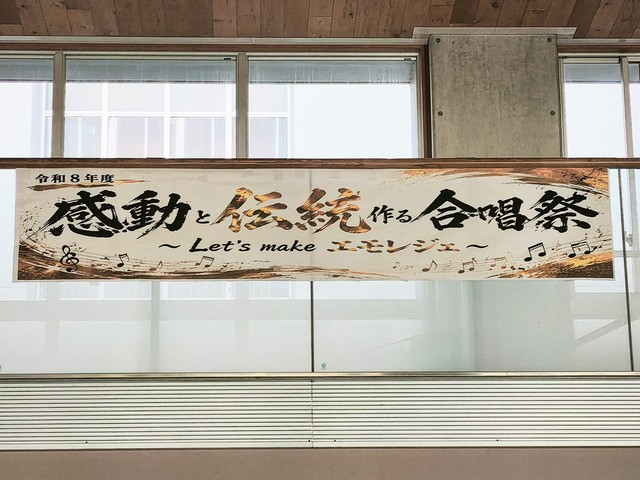 令和8年度
感動と伝統作る合唱祭
～Let's make エモレジェ～